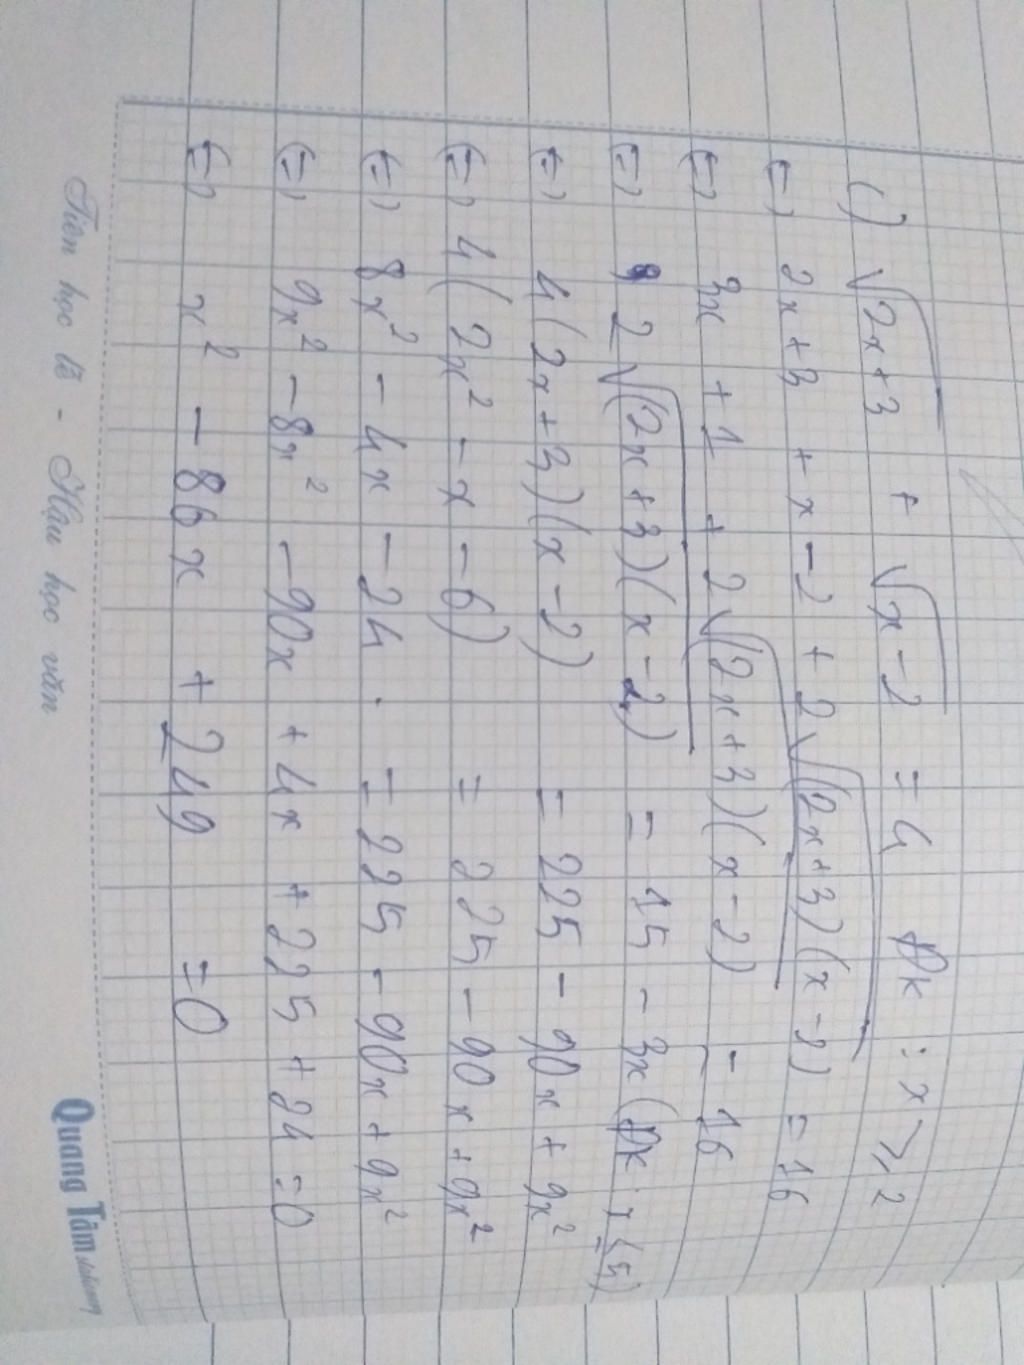 c) √2x+3 + √x-2 = 4 Đk : x ⩾ 2
(=) 2x+3 + x-2 + 2√(2x+3)(x-2) = 16
(=) 3x + 1 + 2√(2x+3)(x-2) = 16
(=) 2√(2x+3)(x-2) = 15 - 3x (Đk : x ≤ 5)
(=) 4(2x+3)(x-2) = 225 - 90x + 9x²
(=) 4(2x² - x - 6) = 225 - 90x + 9x²
(=) 8x² - 4x - 24 = 225 - 90x + 9x²
(=) 9x² - 8x² - 90x + 4x + 225 + 24 = 0
(=) x² - 86x + 249 = 0
Tiên học lễ - Hậu học văn
Quang Tâm